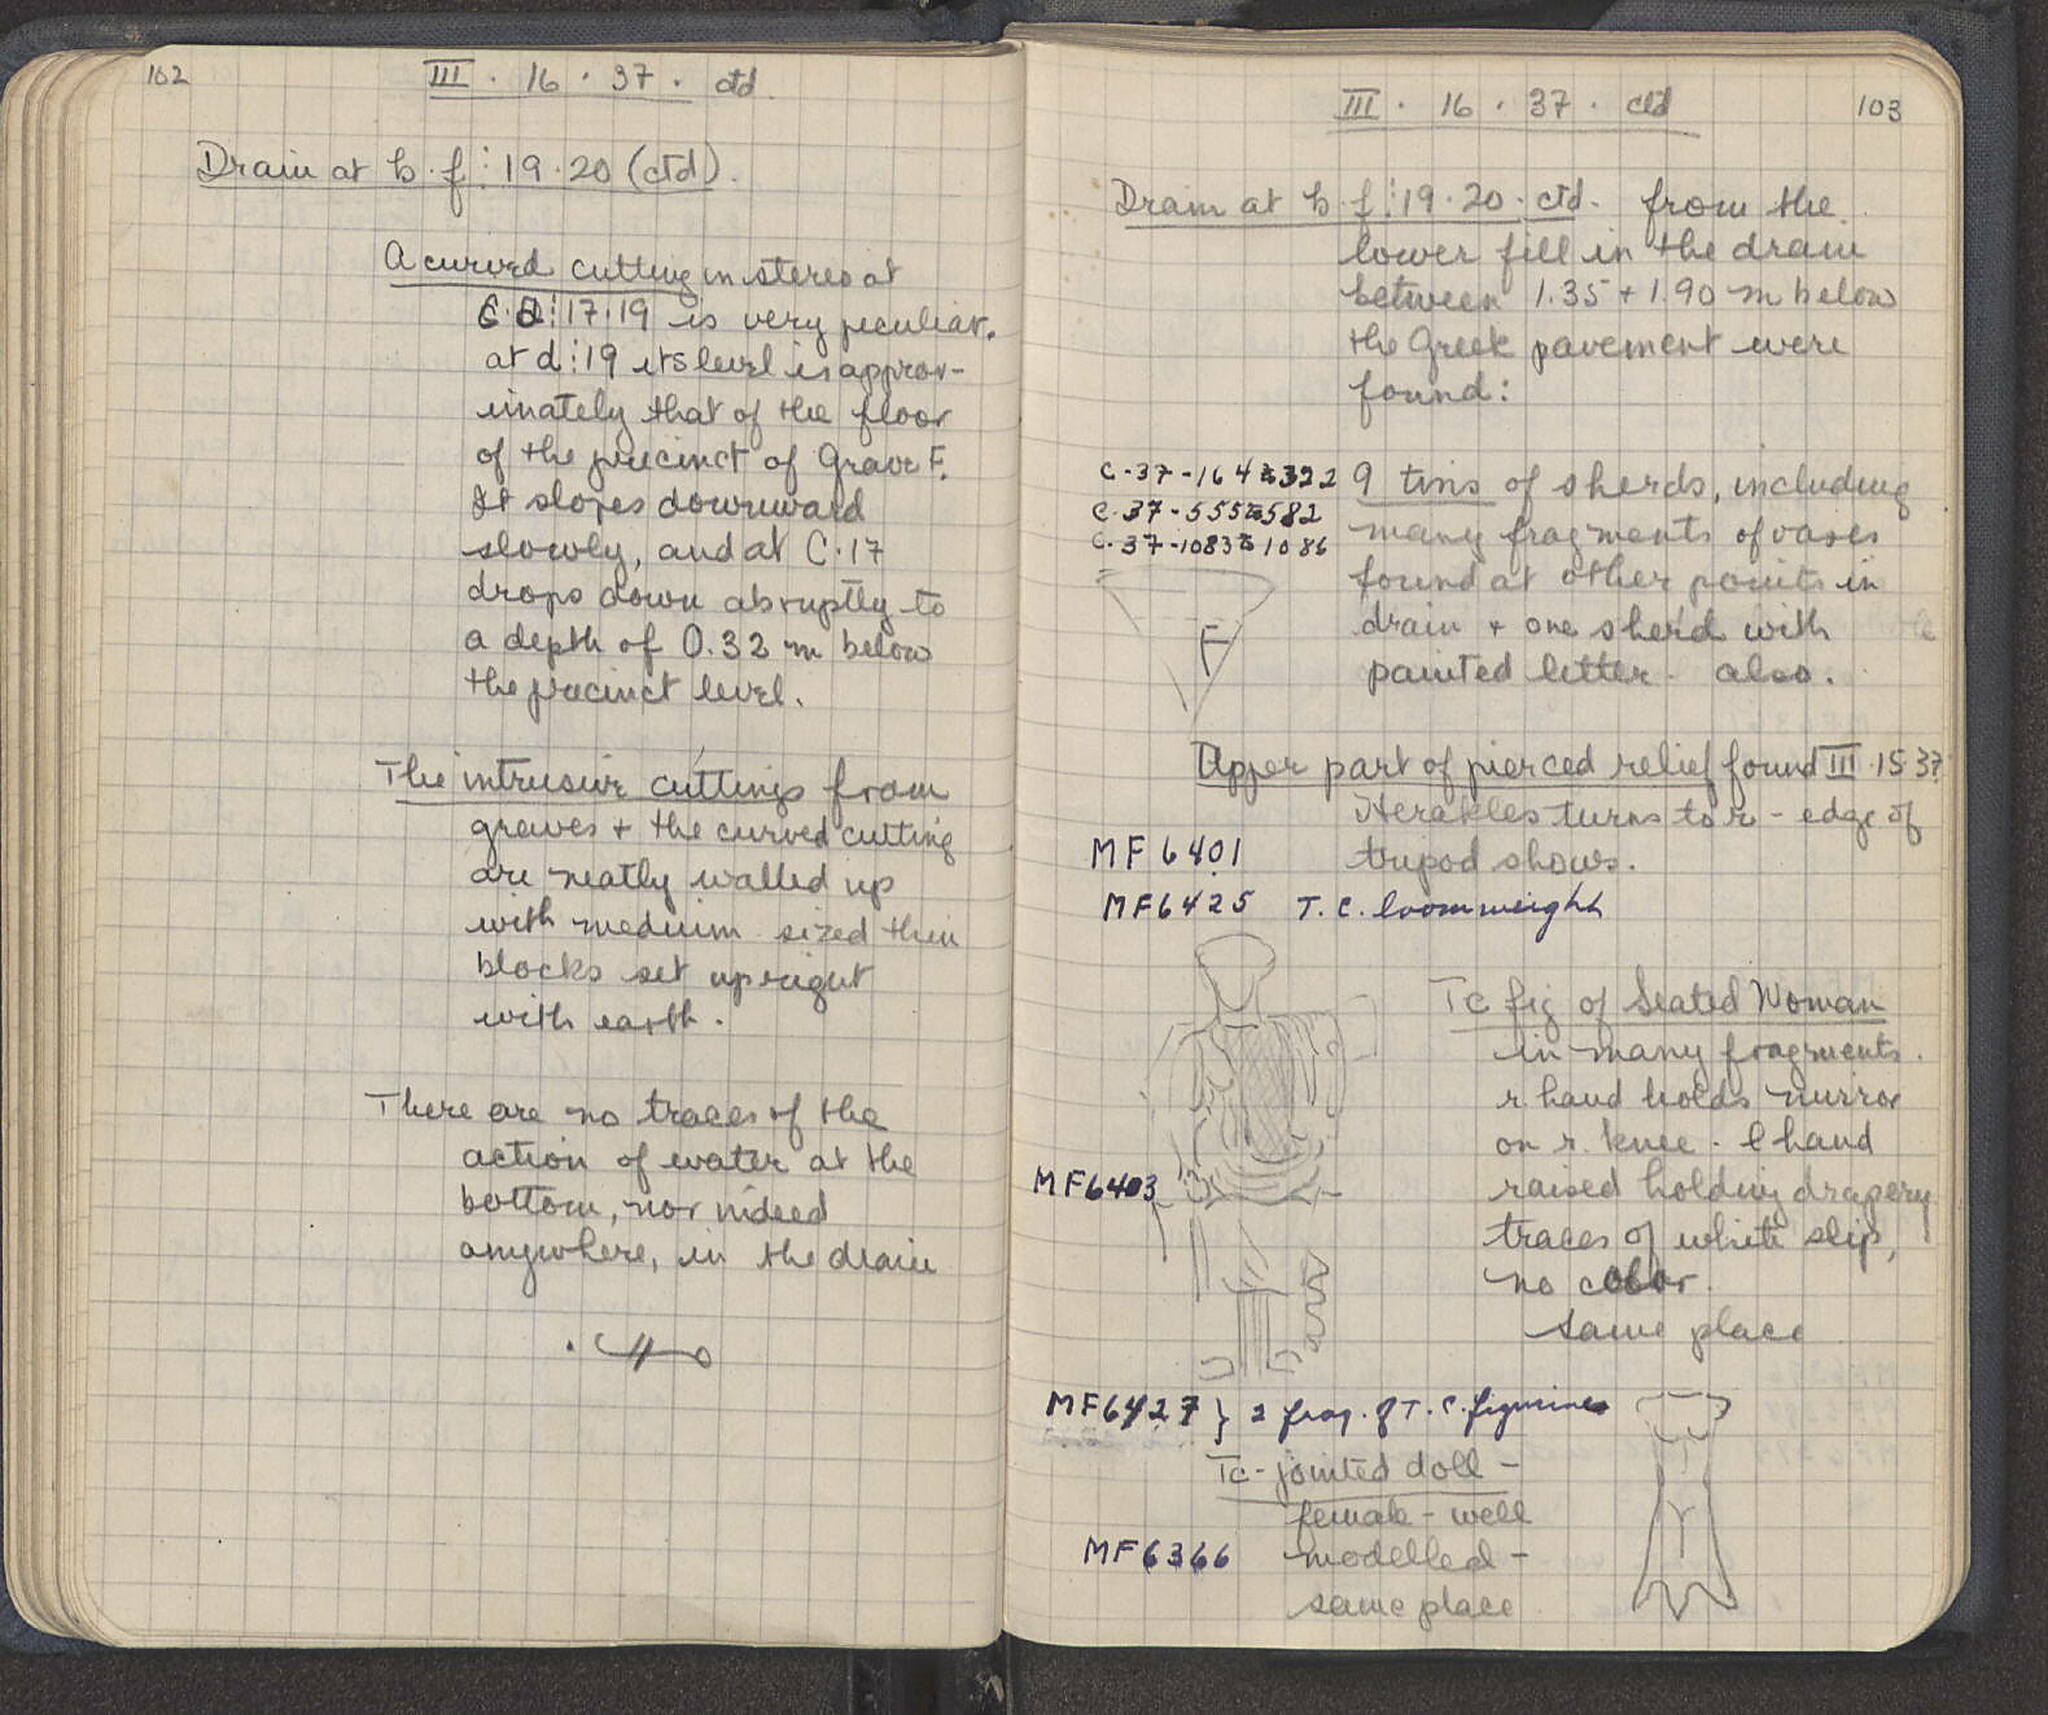 102
III · 16 · 37 · ctd.
Drain at b·f:19·20 (ctd).
A curved cutting in stereo at
C·D:17·19 is very peculiar.
at d:19 its level is approx-
imately that of the floor
of the precinct of Grave F.
It slopes downward
slowly, and at C·17
drops down abruptly to
a depth of 0.32 m below
the precinct level.
The intrusive cuttings from
graves + the curved cutting
are neatly walled up
with medium sized thin
blocks set upright
with earth.
There are no traces of the
action of water at the
bottom, nor indeed
anywhere, in the drain
III · 16 · 37 · ctd
103
Drain at b·f:19·20·ctd. from the
lower fill in the drain
between 1.35 + 1.90 m below
the Greek pavement were
found:
C-37-164 to 322 9 tins of sherds, including
C-37-555 to 582 many fragments of vases
C-37-1083 to 1086
found at other points in
drain + one sherd with
F
painted letter. also.
Upper part of pierced relief found III·15·37
Herakles turns to r - edge of
MF 6401 tripod shows.
MF6425 T.C. loomweight
Tc fig of Seated Woman
in many fragments.
r. hand holds mirror
on r. knee. l hand
MF6403 raised holding drapery
traces of white slip,
no color.
same place
MF6427 } 2 frag. of T.C. figurines
Tc-jointed doll -
female - well
MF6366 modelled -
same place